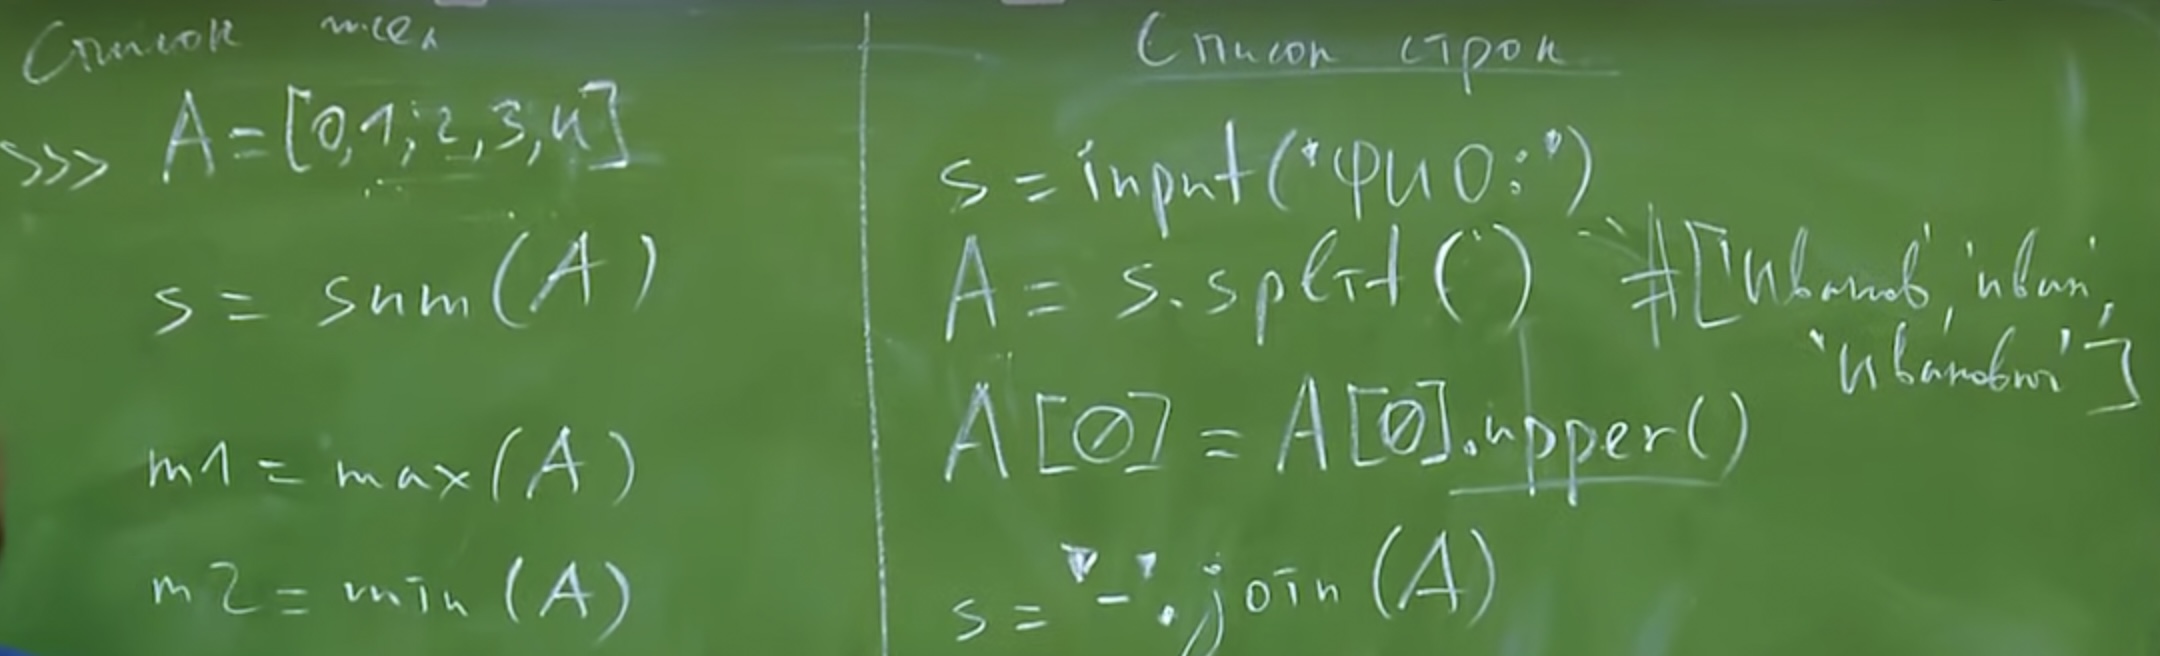 Список чисел
>>> A=[0,1,2,3,4]
s = sum(A)
m1 = max(A)
m2 = min(A)
Список строк
s = input('ФИО:')
A = s.split() #['Иванов', 'Иван',
'Иванович']
A[0] = A[0].upper()
s = '-'.join(A)